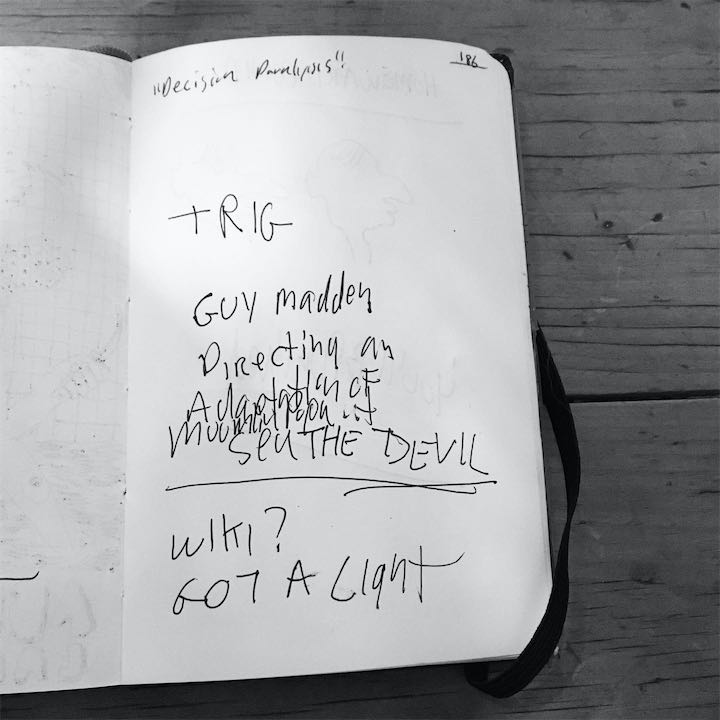 "Decision Paralysis"!
186
TRIG
GUY madden
Directing an
Adaptation of
SEU THE DEVIL
WIKI?
GOT A Light